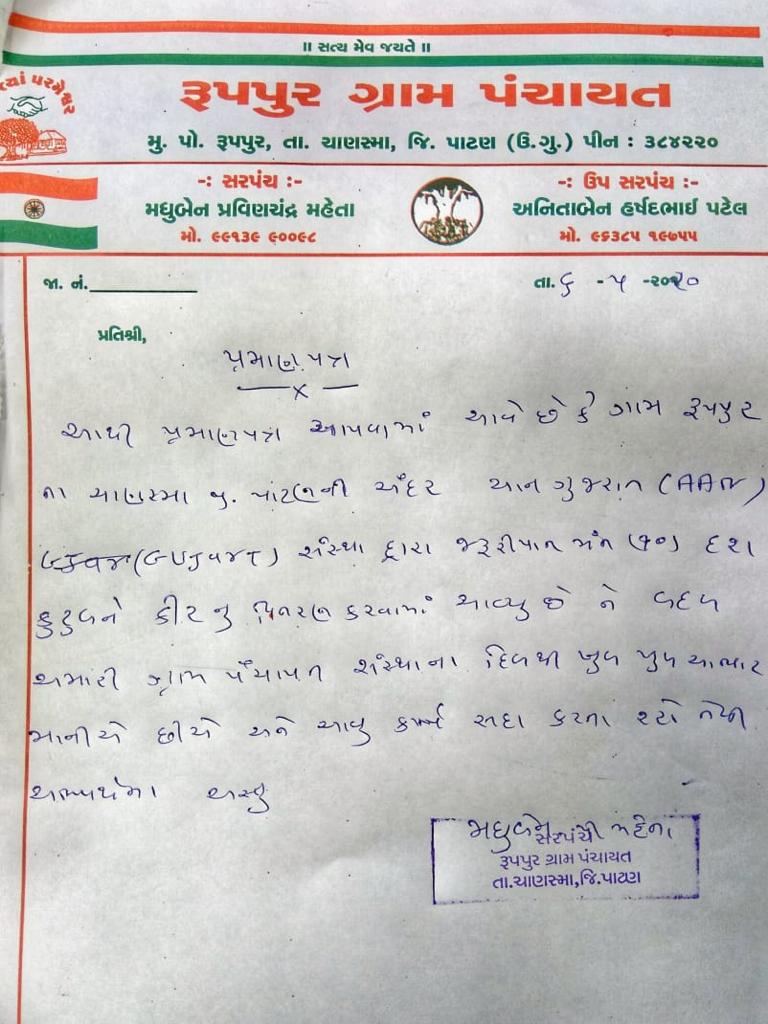 ॥ સત્ય મેવ જયતે ॥
ત્યાં પરમેશ્વર
રૂપપુર ગ્રામ પંચાયત
મુ. પો. રૂપપુર, તા. ચાણસ્મા, જિ. પાટણ (ઉ.ગુ.) પીન : ૩૮૪૨૨૦
-: સરપંચ :-
મધુબેન પ્રવિણચંદ્ર મહેતા
મો. ૯૯૧૩૯ ૯૦૦૯૮
-: ઉપ સરપંચ :-
અનિતાબેન હર્ષદભાઈ પટેલ
મો. ૯૬૩૮૫ ૧૯૭૫૫
જા. નં.
તા. ૬ -૫ -૨૦૨૦
પ્રતિશ્રી,
પ્રમાણપત્ર
આથી પ્રમાણપત્ર આપવામાં આવે છે કે ગામ રૂપપુર
તા ચાણસ્મા જી. પાટણની અંદર આન ગુજરાત (AAN)
(GUJarT) સંસ્થા દ્વારા જરૂરીયાત મંદ (૧૦) દશ
કુટુંબને કીટનુ વિતરણ કરવામાં આવ્યુ છે તે બદલ
અમારી ગ્રામ પંચાયત સંસ્થાના દિલથી ખુબ ખુબ આભાર
માનીએ છીએ અને આવુ કાર્ય સદા કરતા રહો તેવી
અસ્તુ
મધુબેન મહેતા
સરપંચ
રૂપપુર ગ્રામ પંચાયત
તા.ચાણસ્મા,જિ.પાટણ